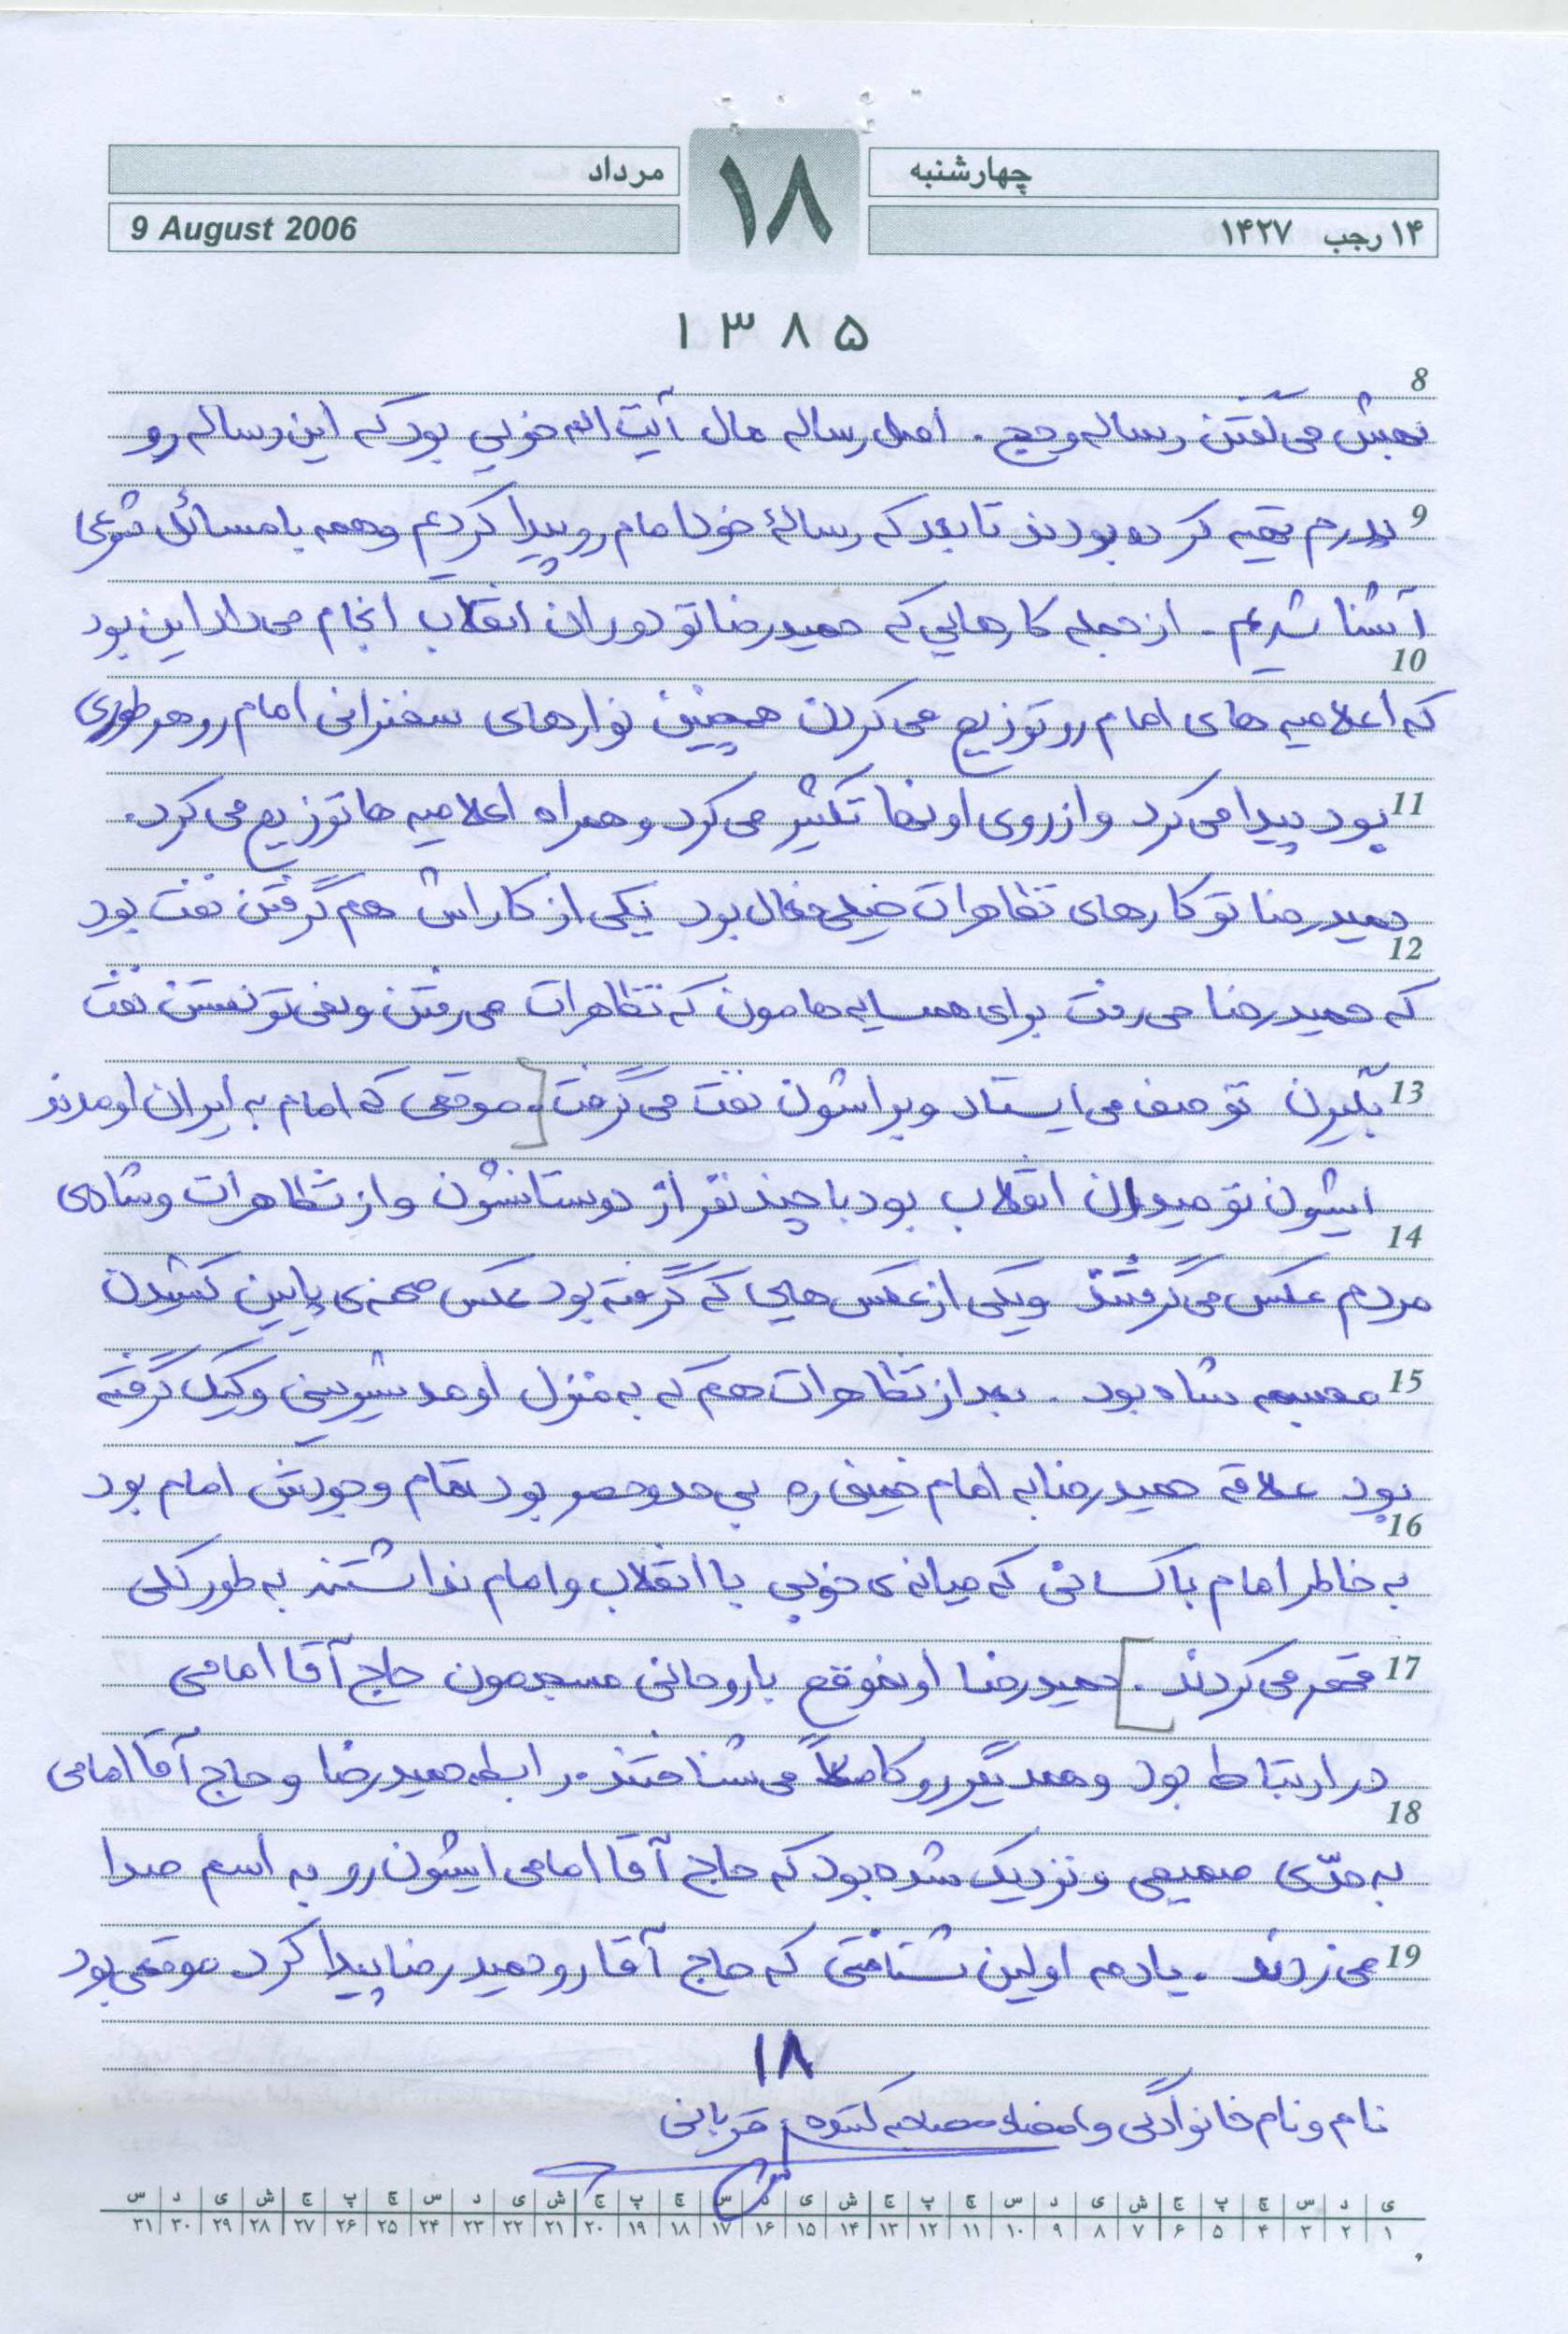 چهارشنبه
۱۸
مرداد
۱۴ رجب ۱۴۲۷
9 August 2006
۱۳۸۵
8
بهش می گفتن رساله وحج. اصل رساله مال آیت اله خویی بود که این رساله رو
9
پدرم تهیه کرده بودند تا بعد که رسالهٔ خود امام رو پیدا کردیم وهمه با مسائل شرعی
آشنا شدیم. از جمله کارهایی که حمیدرضا تو دوران انقلاب انجام می داد این بود
10
که اعلامیه های امام رو توزیع می کردن همچنین نوارهای سخنرانی امام رو هر طوری
11
بود پیدا می کرد و از روی اونها تکثیر می کرد و همراه اعلامیه ها توزیع می کرد.
حمیدرضا تو کارهای تظاهرات خیلی فعال بود یکی از کاراش هم گرفتن نفت بود
12
که حمیدرضا می رفت برای همسایه هامون که تظاهرات می رفتن و نمی تونستن نفت
13
بگیرن تو صف می ایستاد و براشون نفت می گرفت. [موقعی که امام به ایران اومدند
ایشون تو میدان انقلاب بود با چند نفر از دوستانشون و از تظاهرات و شادی
14
مردم عکس می گرفتند و یکی از عکس هایی که گرفته بود عکس صحنه ی پایین کشیدن
15
مجسمه شاه بود. بعد از تظاهرات هم که به منزل اومد شیرینی و کیک گرفته
بود علاقه حمیدرضا به امام خمینی ره بی حد و حصر بود تمام وجودش امام بود
16
به خاطر امام با کسانی که میانه ی خوبی با انقلاب و امام نداشتند به طور کلی
17
قهر می کردند.] حمیدرضا اونموقع با روحانی مسجدمون حاج آقا امامی
در ارتباط بود و همدیگر رو کاملاً می شناختند. رابطه حمیدرضا و حاج آقا امامی
18
به حدّی صمیمی و نزدیک شده بود که حاج آقا امامی ایشون رو به اسم صدا
19
می زدند. یادمه اولین شناختی که حاج آقا رو حمیدرضا پیدا کرد موقعی بود
۱۸
نام و نام خانوادگی و امضاء مصاحبه کننده: قربانی
ی د س چ پ ج ش ی د س چ پ ج ش ی د س چ پ ج ش ی د س چ پ ج ش ی د س
۱ ۲ ۳ ۴ ۵ ۶ ۷ ۸ ۹ ۱۰ ۱۱ ۱۲ ۱۳ ۱۴ ۱۵ ۱۶ ۱۷ ۱۸ ۱۹ ۲۰ ۲۱ ۲۲ ۲۳ ۲۴ ۲۵ ۲۶ ۲۷ ۲۸ ۲۹ ۳۰ ۳۱